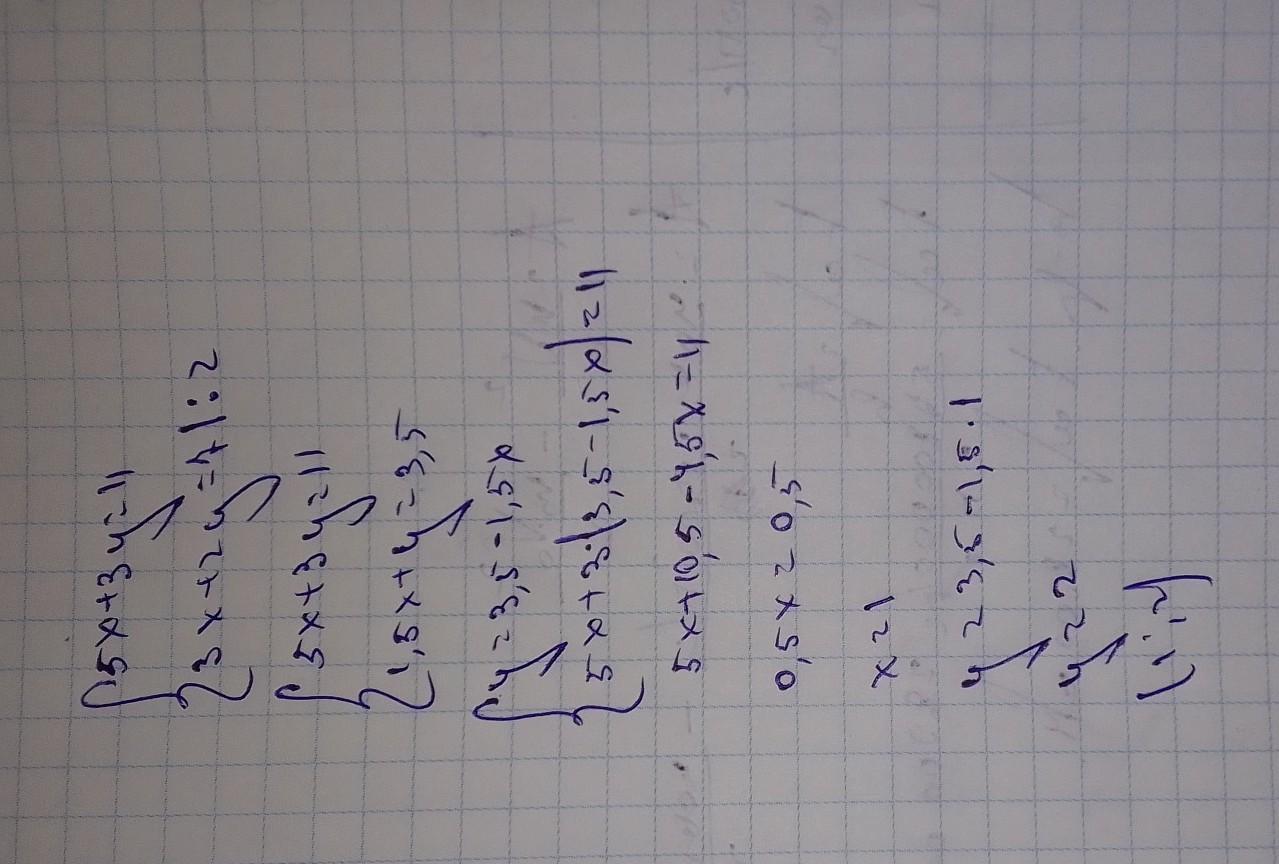 {5x+3y=11
{3x+2y=7 |:2
{5x+3y=11
{1,5x+y=3,5
{y=3,5-1,5x
{5x+3·(3,5-1,5x)=11
5x+10,5-4,5x=11
0,5x=0,5
x=1
y=3,5-1,5·1
y=2
(1;2)